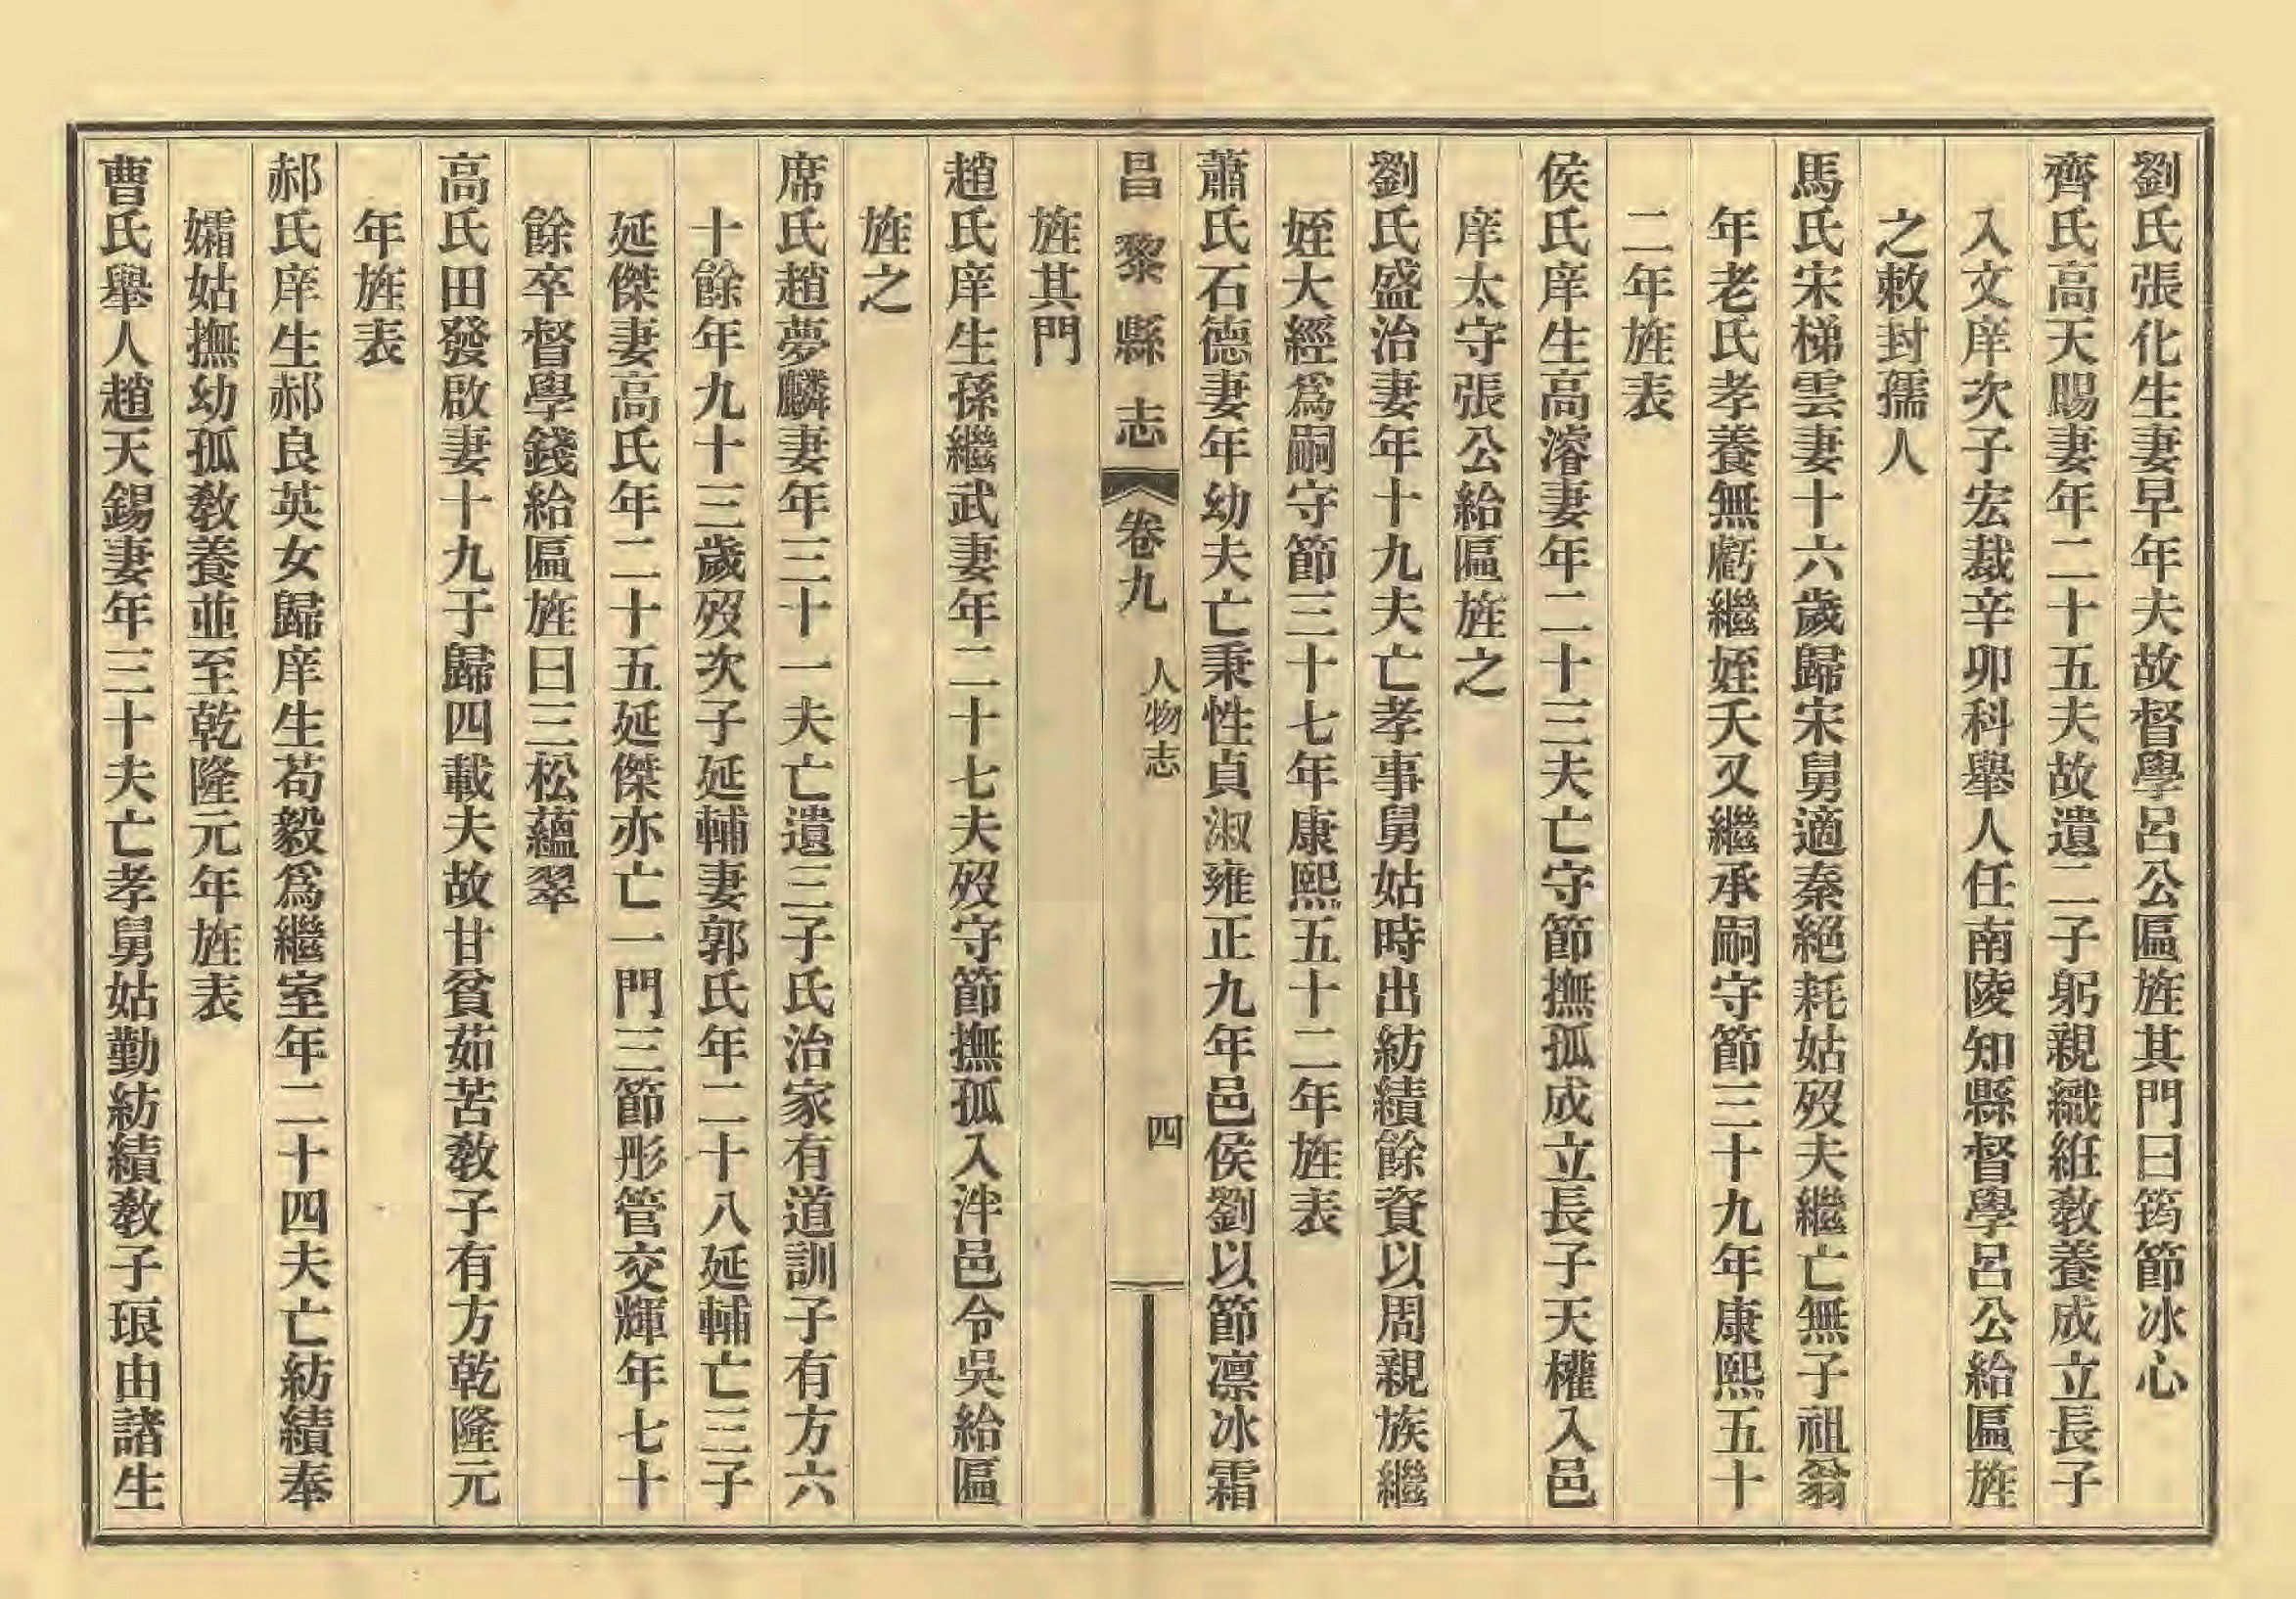 劉氏張化生妻早年夫故督學呂公區旌其門曰筠節冰心
齊氏高天賜妻年二十五夫故遺二子躬親織絍敎養成立長子
入文庠次子宏裁辛卯科舉人任南陵知縣督學呂公給區旌
之敕封孺人
馬氏宋梯雲妻十六歲歸宋舅適秦絕耗姑歿夫繼亡無子祖翁
年老氏孝養無虧繼姪夭又繼承嗣守節三十九年康熙五十
二年旌表
侯氏庠生高濬妻年二十三夫亡守節撫孤成立長子天權入邑
庠太守張公給區旌之
劉氏盛治妻年十九夫亡孝事舅姑時出紡績餘資以周親族繼
姪大經爲嗣守節三十七年康熙五十二年旌表
蕭氏石德妻年幼夫亡秉性貞淑雍正九年邑侯劉以節凛冰霜
旌其門
昌黎縣志 卷九 人物志 四
趙氏庠生孫繼武妻年二十七夫歿守節撫孤入泮邑令吳給區
旌之
席氏趙夢麟妻年三十一夫亡遺三子氏治家有道訓子有方六
十餘年九十三歲歿次子延輔妻郭氏年二十八延輔亡三子
延傑妻高氏年二十五延傑亦亡一門三節彤管交輝年七十
餘卒督學錢給區旌曰三松蘊翠
高氏田發啟妻十九于歸四載夫故甘貧茹苦敎子有方乾隆元
年旌表
郝氏庠生郝良英女歸庠生苟毅爲繼室年二十四夫亡紡績奉
孀姑撫幼孤敎養並至乾隆元年旌表
曹氏舉人趙天錫妻年三十夫亡孝舅姑勤紡績敎子琅由諸生